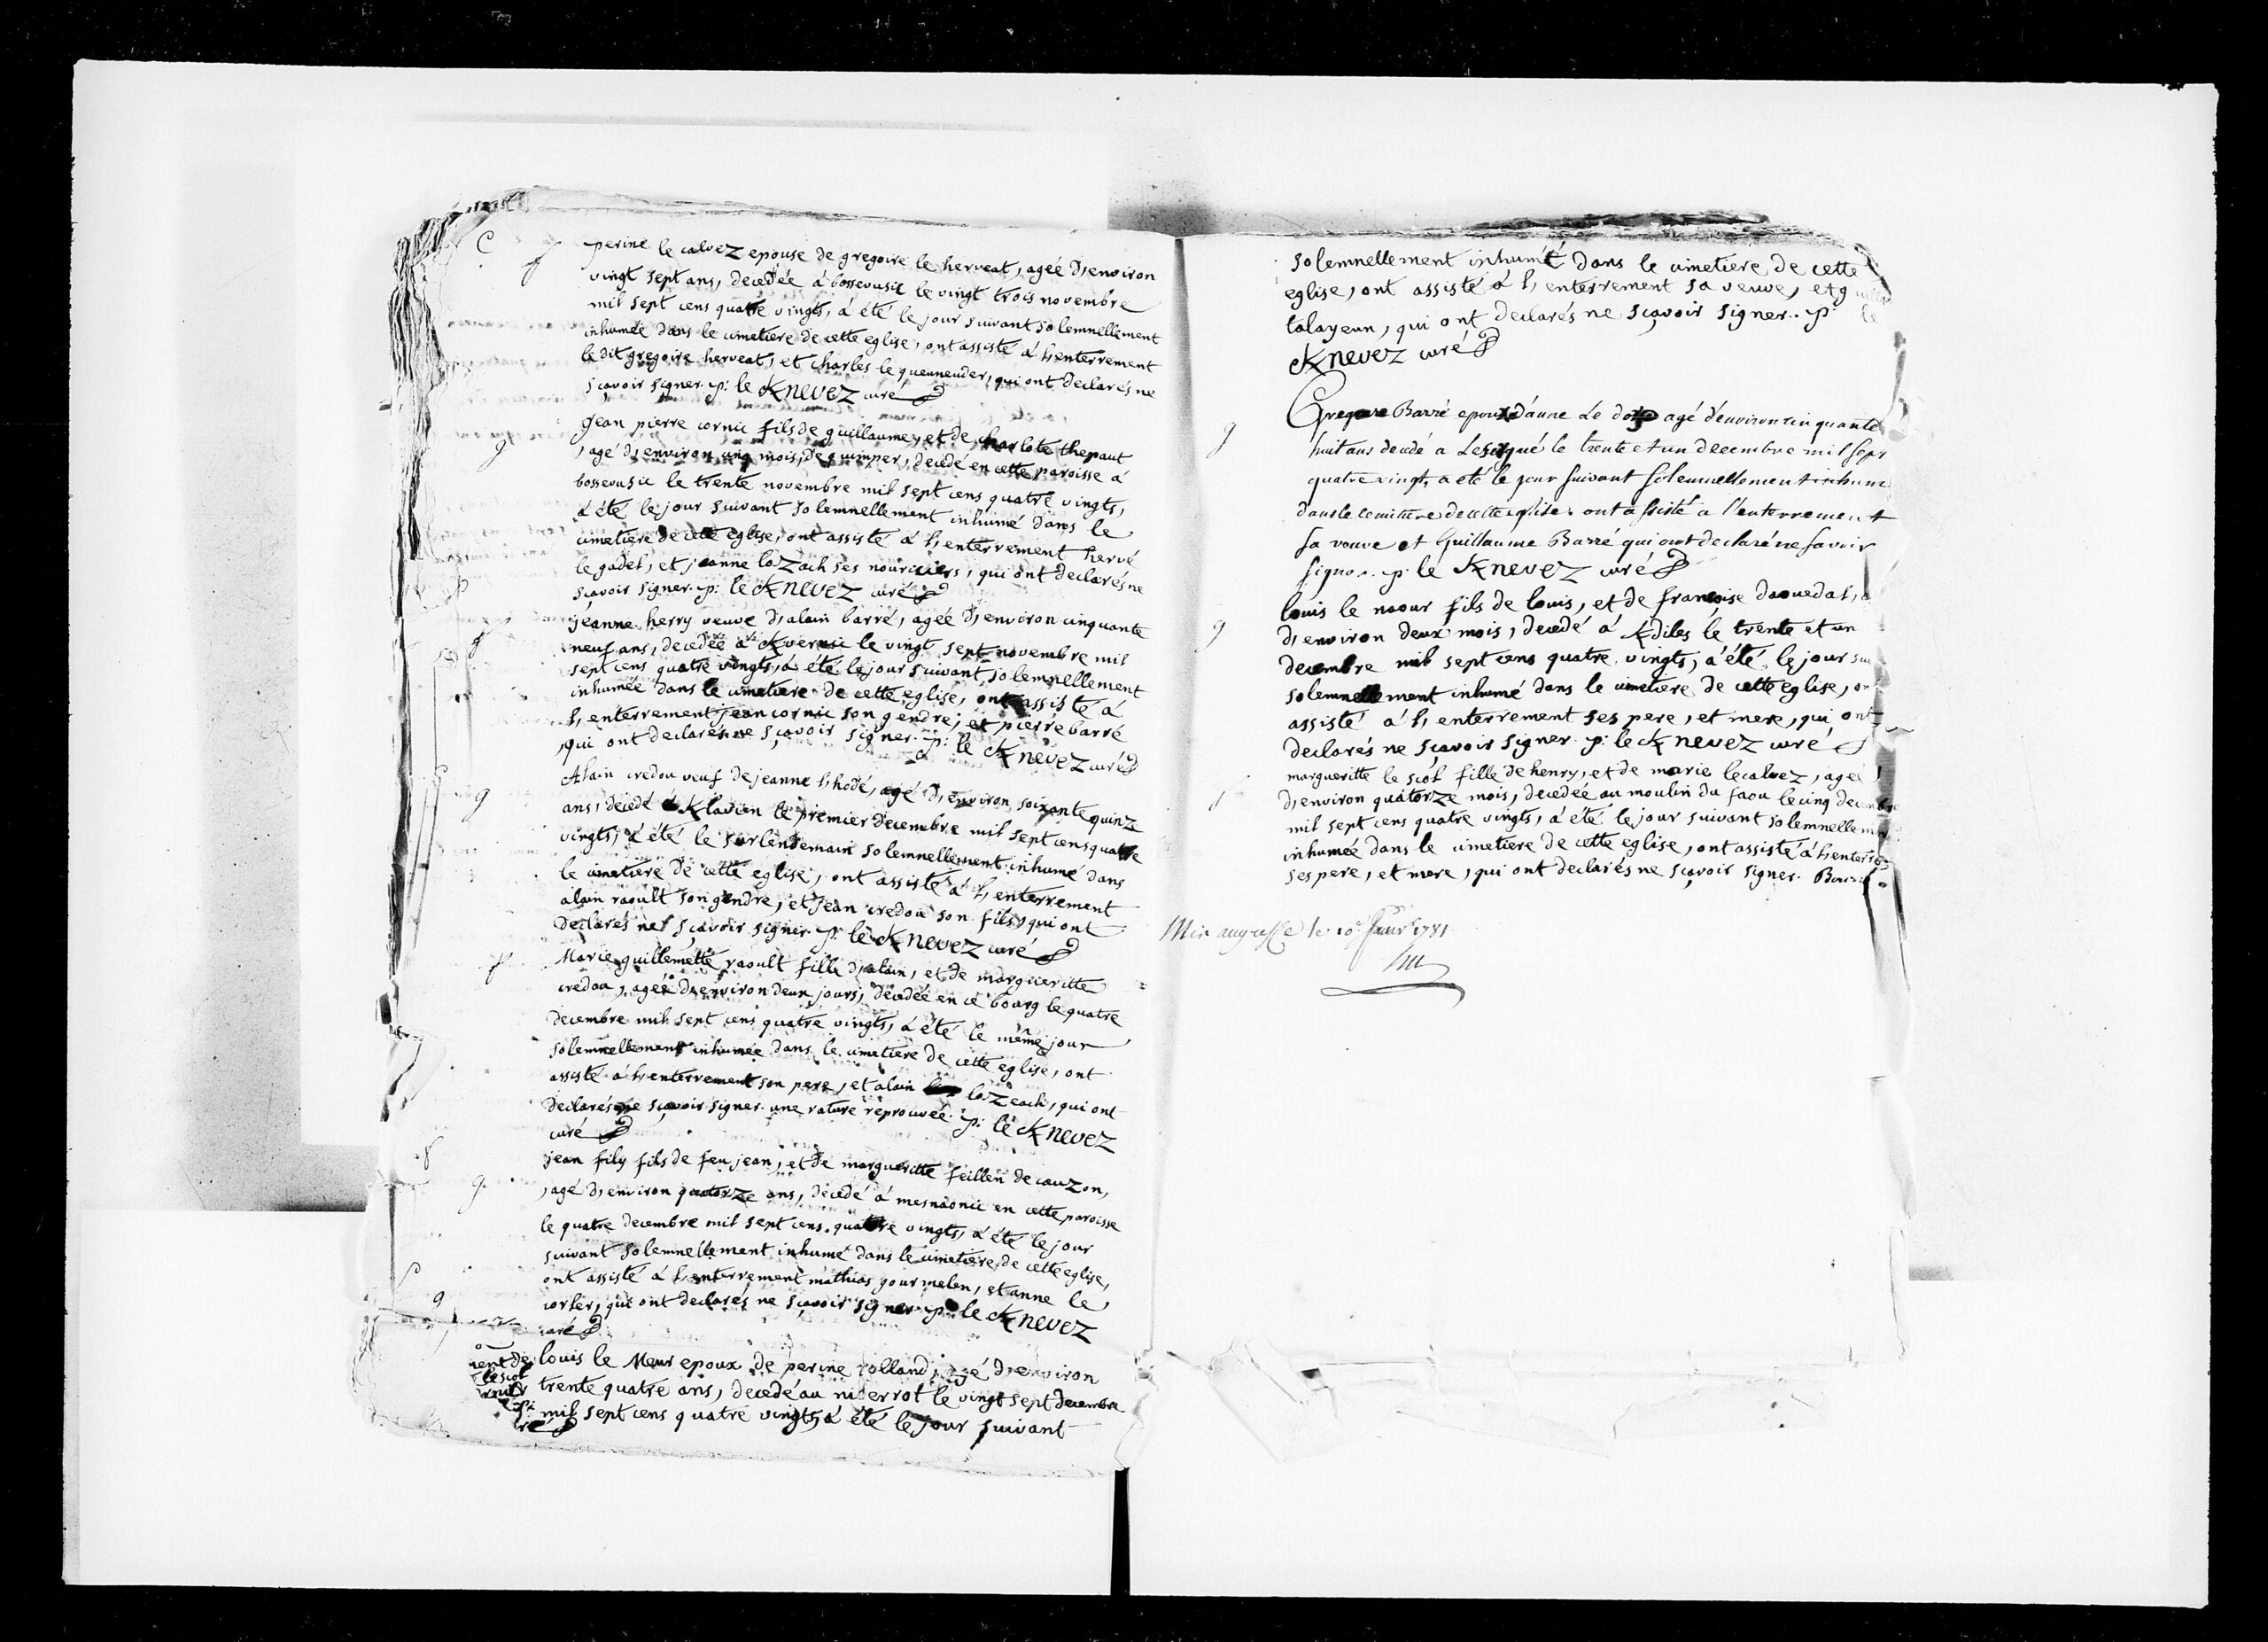 C
f
perine le calvez epouse de gregoire le herveat, agée d,environ
vingt sept ans, decedée á bossevusic le vingt trois novembre
mil sept cens quatre vingts, á été le jour suivant solemnellement
inhumée dans le cimetiere de cette eglise, ont assisté á l,enterrement
ledit gregoire herveat, et charles le queuneuder, qui ont declarés ne
sçavoir signer. p: le Knevez curé
g
Jean pierre cornic fils de guillaume, et de charlote thepaut
, agé d,environ cinq mois, de quimper, decedé en cette paroisse á
bossevusic le trente novembre mil sept cens quatre vingts,
á été le jour suivant solemnellement inhumé dans le
cimetiere de cette eglise, ont assisté á l,enterrement hervé
le gadel, et jeanne lozach ses nourciers, qui ont declarés ne
sçavoir signer. p: le Knevez curé
f
jeanne herry veuve d,alain barré, agée d,environ cinquante
neuf ans, decedée á Kvernic le vingt sept novembre mil
sept cens quatre vingts, á été le jour suivant, solemnellement
inhumée dans le cimetiere de cette eglise, ont assisté á
l,enterrement jean cornic son gendre, et pierre barré
, qui ont declarés ne sçavoir signer. p: le Knevez curé
g
Alain credou veuf de jeanne l,hodé, agé d,environ soixante quinze
ans, decedé á Kladien le premier decembre mil sept cens quatre
vingts, á été le surlendemain solemnellement inhumé dans
le cimetiere de cette eglise, ont assisté á l,enterrement
alain raoult son gendre, et Jean credou son fils, qui ont
declarés ne sçavoir signer. p: le Knevez curé
f
Marie guillemette raoult fille d,alain, et de margueritte
credou, agée d,environ deux jours, decedée en ce bourg le quatre
decembre mil sept cens quatre vingts, á été le même jour
solemnellement inhumée dans le cimetiere de cette eglise, ont
assisté á l,enterrement son pere, et alain lozeach, qui ont
declarés ne sçavoir signer. une rature reprouvée. p: le Knevez
curé
g
jean fily fils de feu jean, et de margueritte feillen de cauzon,
, agé d,environ quatorze ans, decedé á mesnaonic en cette paroisse
le quatre decembre mil sept cens quatre vingts, á été le jour
suivant solemnellement inhumé dans le cimetiere de cette eglise,
ont assisté á l,enterrement mathias gourmelen, et anne le
corler, qui ont declarés ne sçavoir signer. p: le Knevez
curé
g
louis le Meur epoux de perine rolland, agé d,environ
trente quatre ans, decedé au niverrot le vingt sept decembre
mil sept cens quatre vingts, á été le jour suivant
solemnellement inhumé dans le cimetiere de cette
eglise, ont assisté á l,enterrement sa veuve, et g
talayeun, qui ont declarés ne sçavoir signer. p: le
Knevez curé
g
Gregoire Barré epoux d'anne Le agé d'environ cinquante
huit ans decedé a le trente et un decembre mil sept
quatre vingt, a eté le jour suivant solemnellement inhumé
dans le cemitiere de cette eglise. ont assisté a l'enterrement
sa veuve et Guillaume Barré qui ont declaré ne savoir
signer. p: le Knevez curé
g
louis le naour fils de louis, et de francoise daouedal, a
d,environ deux mois, decedé á Kdiles le trente et un
decembre mil sept cens quatre vingts, á été le jour sui
solemnellement inhumé dans le cimetiere de cette eglise, on
assisté á l,enterrement ses pere, et mere, qui ont
declarés ne sçavoir signer. p: le Knevez curé
f
margueritte le scoh fille de henry, et de marie le calvez, agée
d,environ quatorze mois, decedée au moulin du faou le cinq decembre
mil sept cens quatre vingts, á été le jour suivant solemnellement
inhumée dans le cimetiere de cette eglise, ont assisté á l,enterre
ses pere, et mere, qui ont declarés ne sçavoir signer.
Mis au greffe le 10e Janvr 1781